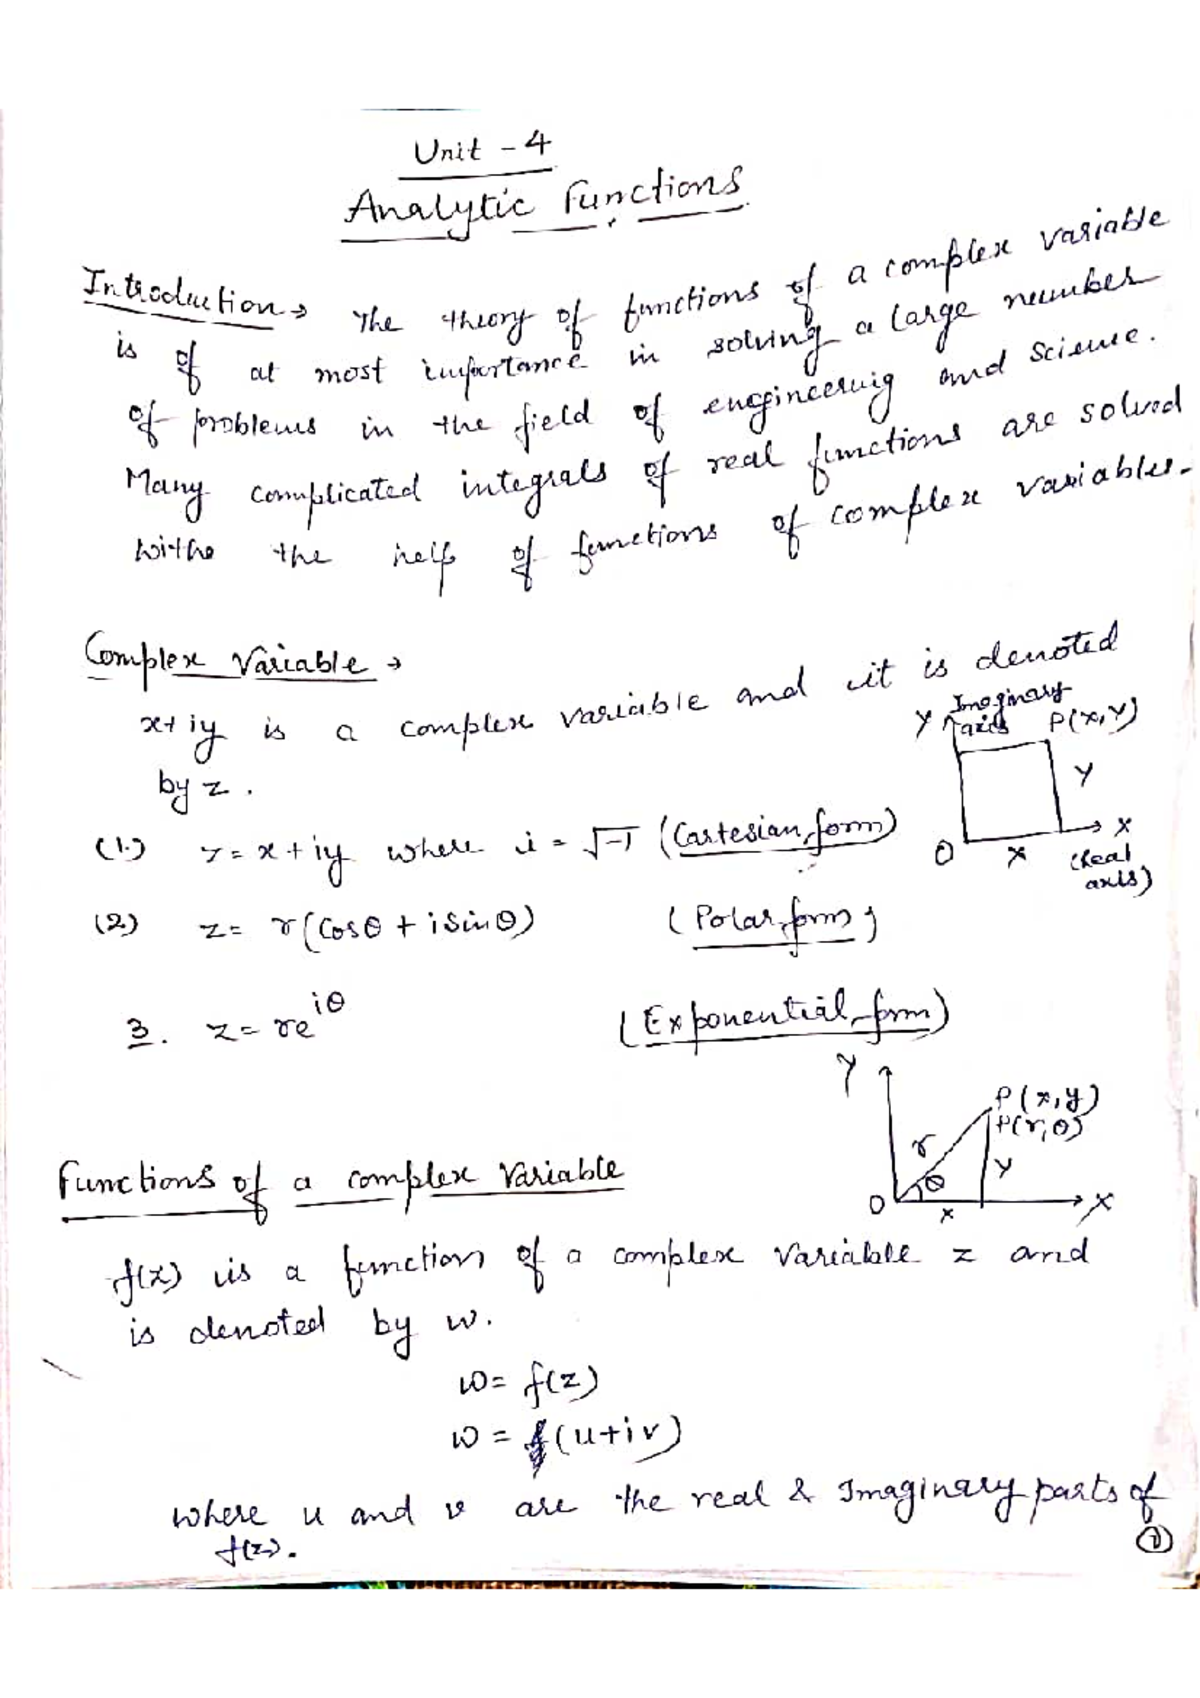 Unit - 4
Analytic Functions
Introduction → The theory of functions of a complex variable
is of at most importance in solving a large number
of problems in the field of engineering and Science.
Many complicated integrals of real functions are solved
withe the help of functions of complex variables.
Complex Variable →
x+iy is a complex variable and it is denoted
by z.
Y Imaginary axis P(x,y)
Y
O X X
(Real axis)
(1.) z = x + iy where i = √-1 (Cartesian form)
(2) z = r(Cosθ + i Sinθ) (Polar form)
3. z = re^{iθ} (Exponential form)
Y
P(x,y)
P(r,θ)
r θ Y
O x X
Functions of a complex Variable
f(z) is a function of a complex variable z and
is denoted by w.
w = f(z)
w = (u+iv)
where u and v are the real & Imaginary parts of
f(z).
1